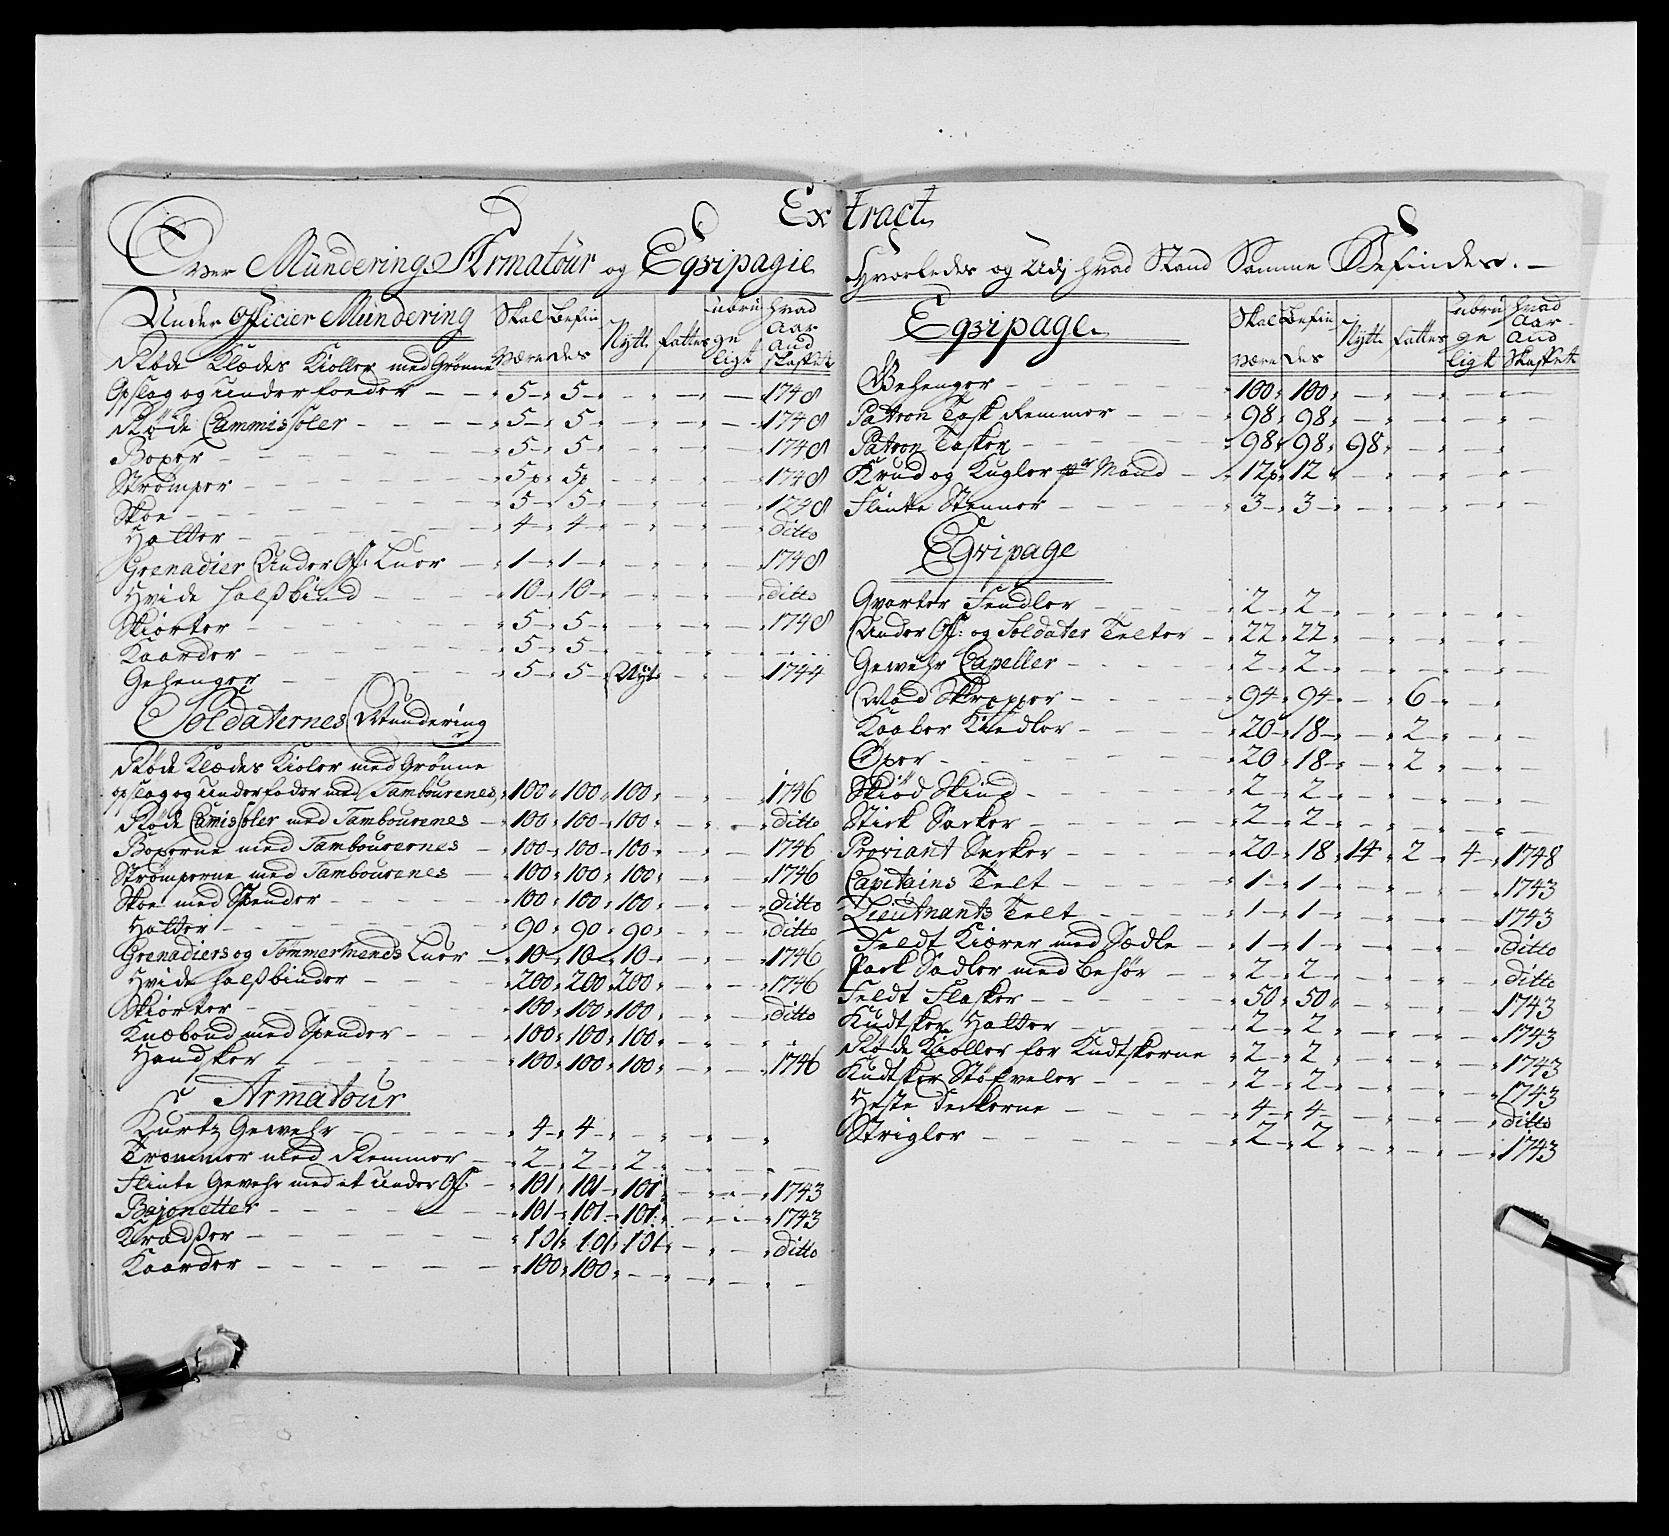 Extract
Over Münderings Armatour og Eqvipagie
Under Officier Mündering Skal være Befindes Nytt fattes ubrugeligt hvad Aar Aud skaffett
Røde Klædes Kioller med Grønne
Opslag og Underfoeder 5 5 1748
Røde Cammissoler 5 5 1748
Boxer 5 5 1748
Strømper 5p 5p 1748
Skoe 5 5 1748
Hatter 4 4 ditto
Grenadier Under Off: Luer 1 1 1748
Hvide halsbind 10 10 ditto
Skiorter 5 5 1748
Kaarder 5 5
Gehenger 5 5 Nyt 1744
Soldaternes Mundering
Røde Klædes Kioler med Grønne
opslag og Underfoder med Tambourenes 100 100 100 1746
Røde Camissoler med Tambourenes 100 100 100 ditto
Boxerne med Tambourernes 100 100 100 1746
Strømperne med Tambourenes 100 100 100 1746
Skoe med Spender 100 100 100 ditto
Hatter 90 90 90 ditto
Grenadiers og Tømmermends Luer 10 10 10 1746
Hvide halsbinder 200 200 200 1746
Skiorter 100 100 100 ditto
Knæbond med Spender 100 100 100
Handsker 100 100 100 1746
Armatour
Kurtz Gewehr 4 4
Trommer med Remmer 2 2 2
Flinte Gewehr med et Under Off: 101 101 101 1743
Bajonetter 101 101 101 1743
Kradßer 101 101 101 ditto
Kaarder 100 100
Hvorledes og Udj hvad Stand Samme Befindes.
Eqvipage Skal være Befindes Nytt fattes ubrugeligt hvad Aar Aud Skaffett
Gehenger 100 100
Patron Task Remmer 98 98
Patron Tasker 98 98 98
Krud og Kugler pr Mand 12p 12
Flinte Stenner 3 3
Eqvipage
Qvarter Fendler 2 2
Under Off: og Soldater Telter 22 22
Gewehr Capeller 2 2
Mad Skrepper 94 94 6
Kaaber Kiedler 20 18 2
Øxer 20 18 2
Skiød Skind 2 2
Stick Secker 2 2
Proviant Secker 20 18 14 2 4 1748
Capitains Telt 1 1 1743
Lieutnants Telt 1 1 1743
Feldt Kiærer med Sædle 1 1 ditto
Pack Sadler med behør 2 2 ditto
Feldt Flasker 50 50 1743
Kudsker Hatter 2 2 1743
Røde Kioller for Kudtskerne 2 2 1743
Kudtsker Støfveler 2 2 1743
Heste Deckerne 4 4 ditto
Strigler 2 2 1743